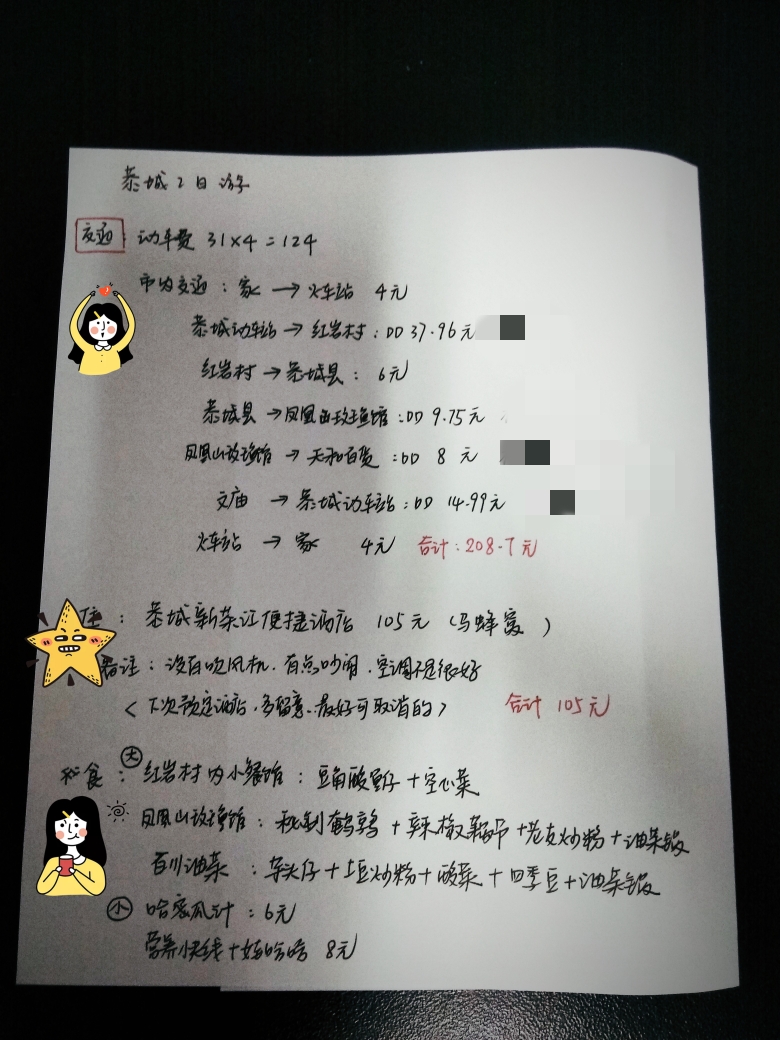 恭城2日游
交通 动车费 31×4=124
市内交通：家 → 火车站 4元
恭城动车站 → 红岩村：DD 37.96元
红岩村 → 恭城县：6元
恭城县 → 凤凰山玫瑰馆：DD 9.75元
凤凰山玫瑰馆 → 天和百货：DD 8元
文庙 → 恭城动车站：DD 14.99元
火车站 → 家 4元 合计：208.7元
住：恭城新茶江便捷酒店 105元（马蜂窝）
备注：没有吹风机，有点吵闹，空调不是很好
〈下次预定酒店，多留意，最好可取消的〉 合计 105元
粮食：大 红岩村内小餐馆：豆角酸 仔+空心菜
凤凰山玫瑰馆：秘制鹌鹑+辣椒 +老友炒粉+油茶锅
百川油茶：芋头仔+土豆炒粉+酸菜+四季豆+油茶锅
小 哈密瓜汁：6元
营养快线+娃哈哈 8元